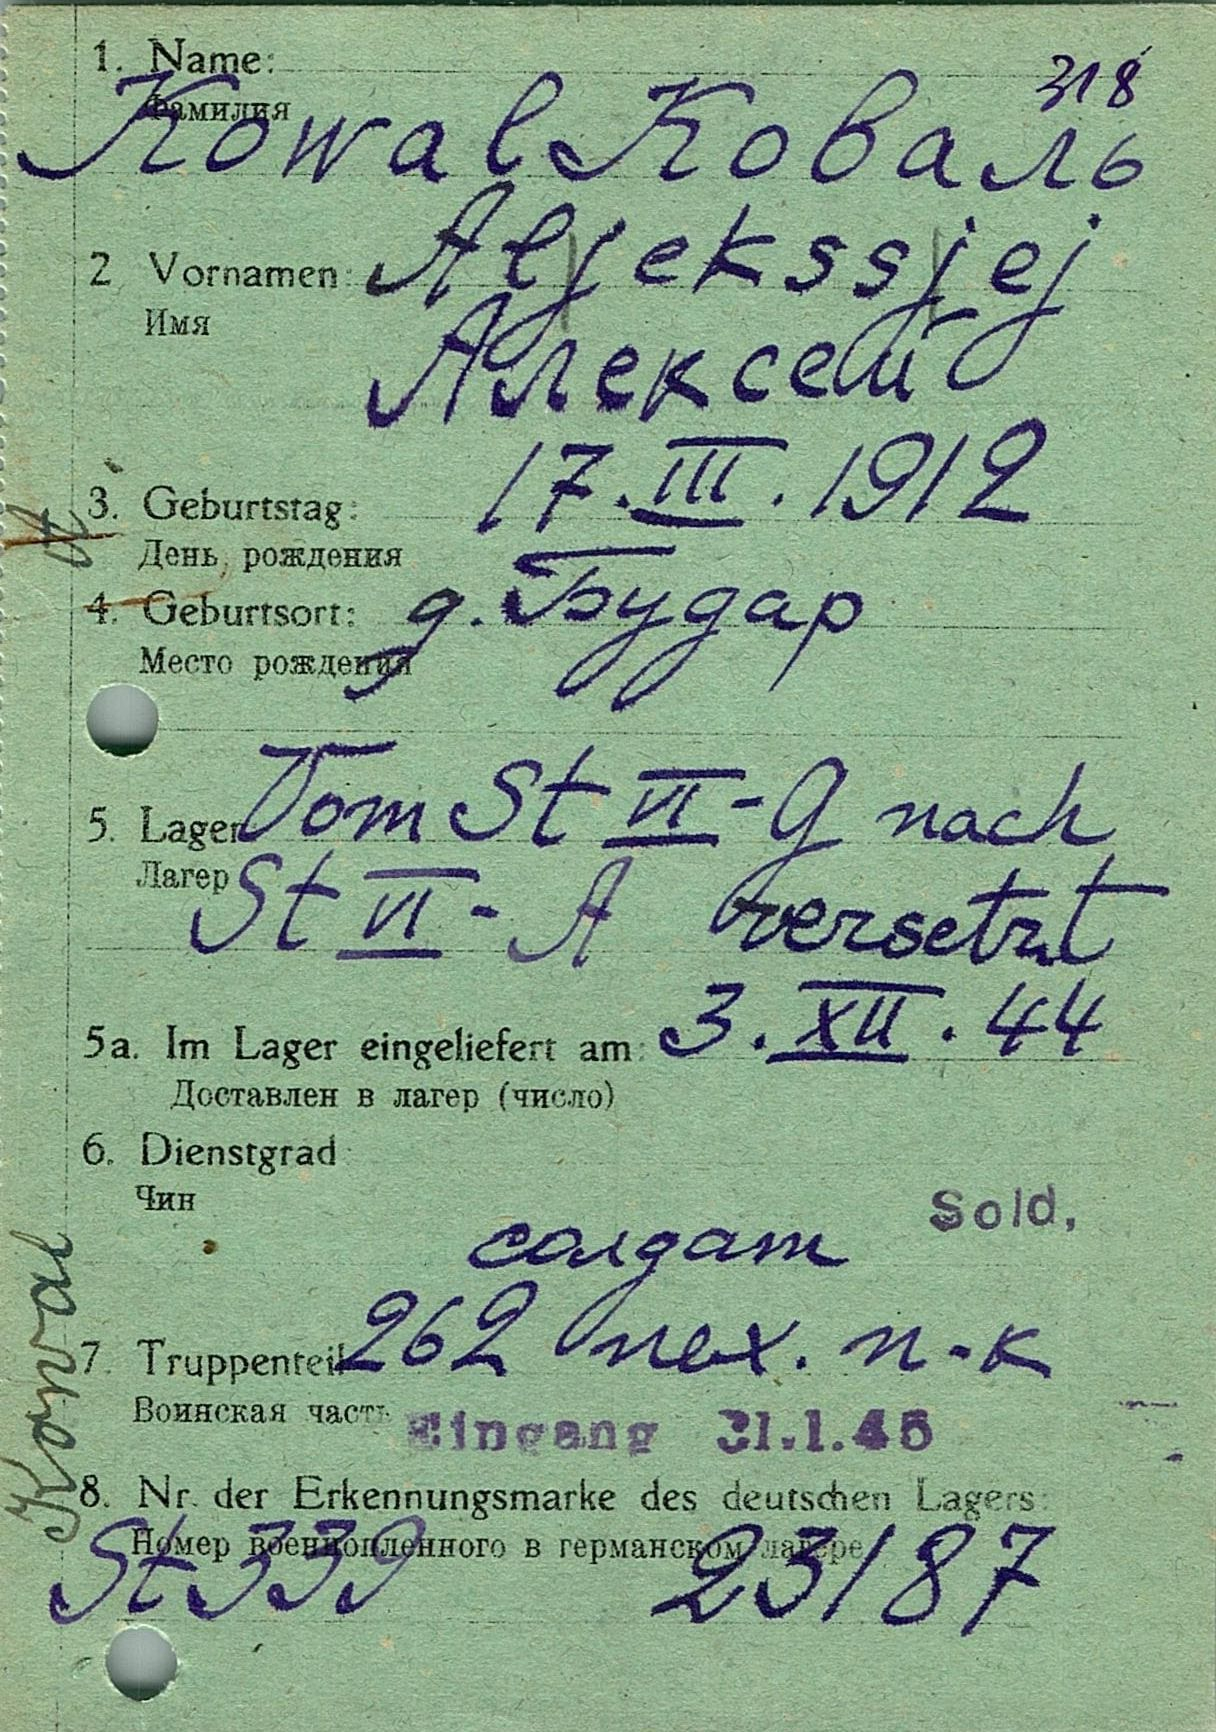 1. Name:
318
Фамилия
Kowal Коваль
2 Vornamen: Aljekssjej
Имя
Алексей
3. Geburtstag: 17.III.1912
День рождения
4. Geburtsort: д. Будар
Место рождения
5. Lager Vom St VI-G nach
Лагер St VI-A versetzt
5a. Im Lager eingeliefert am: 3.XII.44
Доставлен в лагер (число)
6. Dienstgrad:
Чин
Sold,
солдат
7. Truppenteil 262 пех. п-к
Воинская часть
Eingang 31.1.45
8. Nr. der Erkennungsmarke des deutschen Lagers:
Номер военнопленного в германском лагере
St 339 23187
Kowal